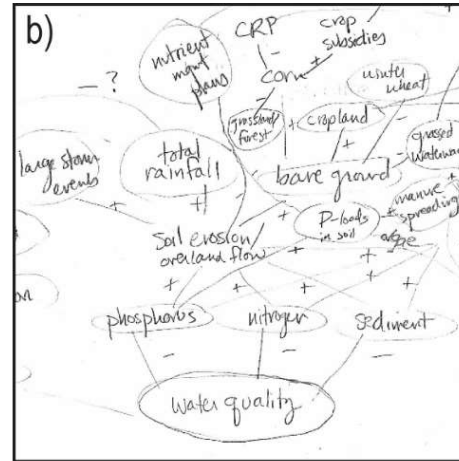 b)
CRP
crop
subsidies
nutrient
mgmt
plans
corn
winter
wheat
grassland/
forest
cropland
grassed
waterways
large storm
events
total
rainfall
bare ground
manure
spreading
P-loads
in soil
soil erosion/
overland flow
phosphorus
nitrogen
sediment
water quality
- ?